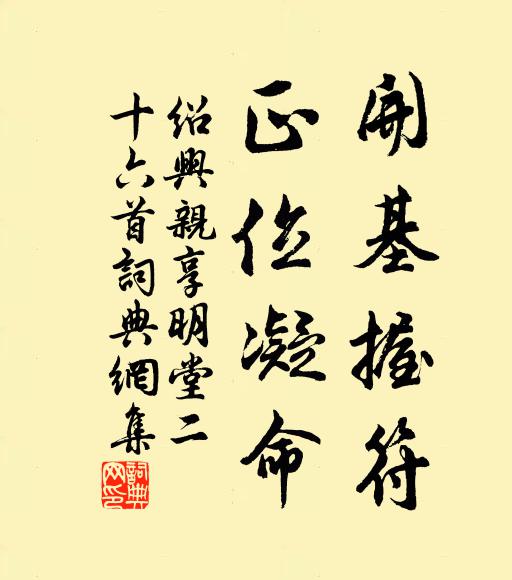 開基握符
正位凝命
紹興親享明堂二
十六首詞典網集
詞典網印